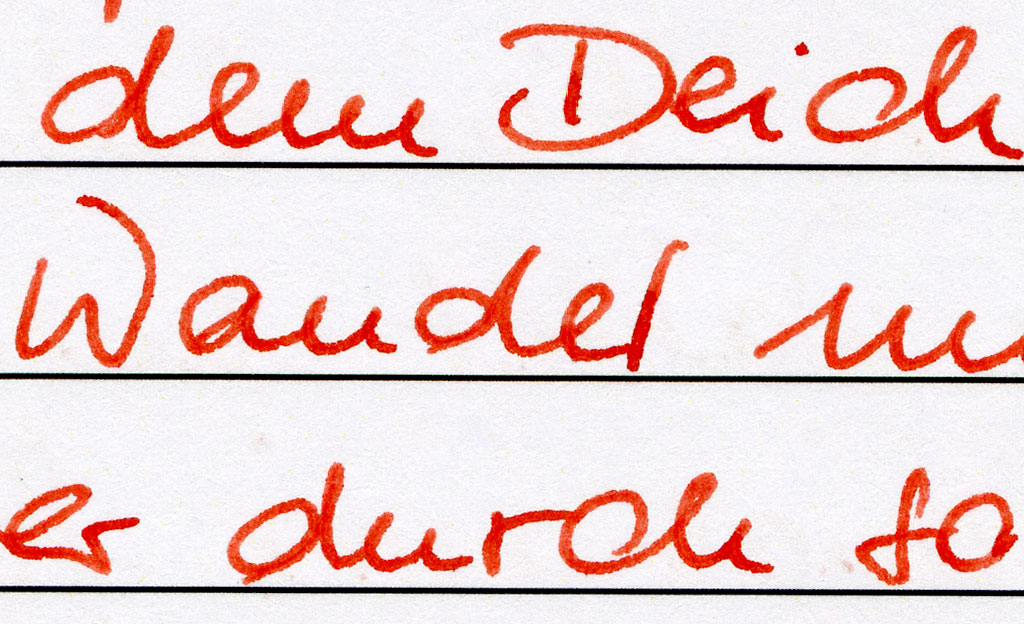 dem Deich
Wandel
er durch